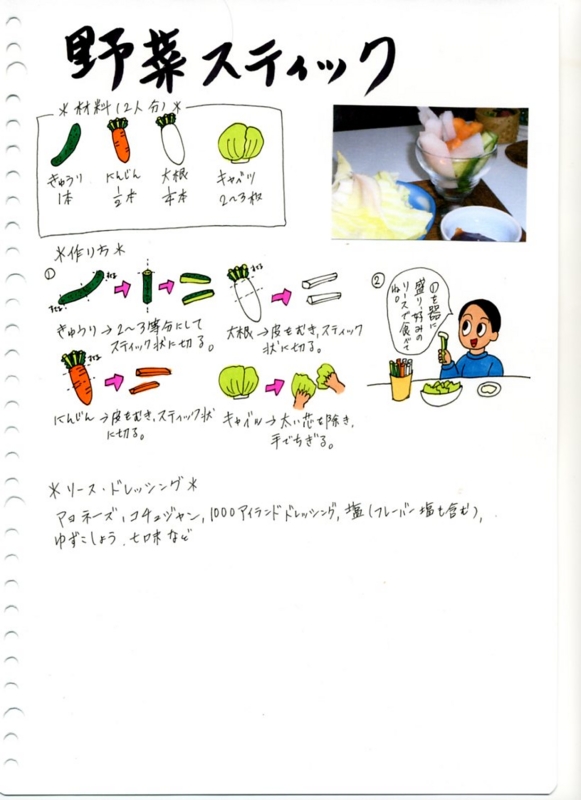 野菜スティック
＊材料(2人分)＊
きゅうり
1本
にんじん
1/2本
大根
1/4本
キャベツ
2〜3枚
＊作り方＊
①
すてる
すてる
きゅうり→2〜3等分にして
スティック状に切る。
大根→皮をむき,スティック
状に切る。
すてる
にんじん→皮をむき,スティック状
に切る。
キャベツ→太い芯を除き,
手でちぎる。
②
①を器に
盛り,好みの
ソースで食べて
ね。
＊ソース・ドレッシング＊
マヨネーズ,コチュジャン,1000アイランドドレッシング,塩(フレーバー塩も含む),
ゆずこしょう,七味など